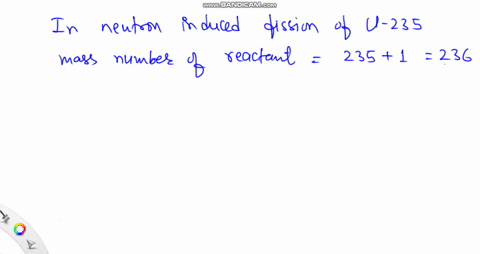 WWW.BANDICAM.COM
In neutron induced fission of U-235
mass number of reactant = 235 + 1 = 236